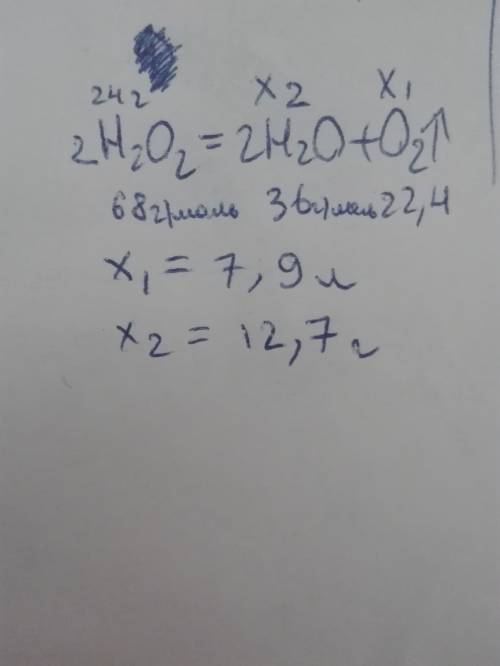 24 г X2 X1
2H₂O₂ = 2H₂O + O₂↑
68г/моль 36г/моль 22,4
x₁ = 7,9 л
x₂ = 12,7 г